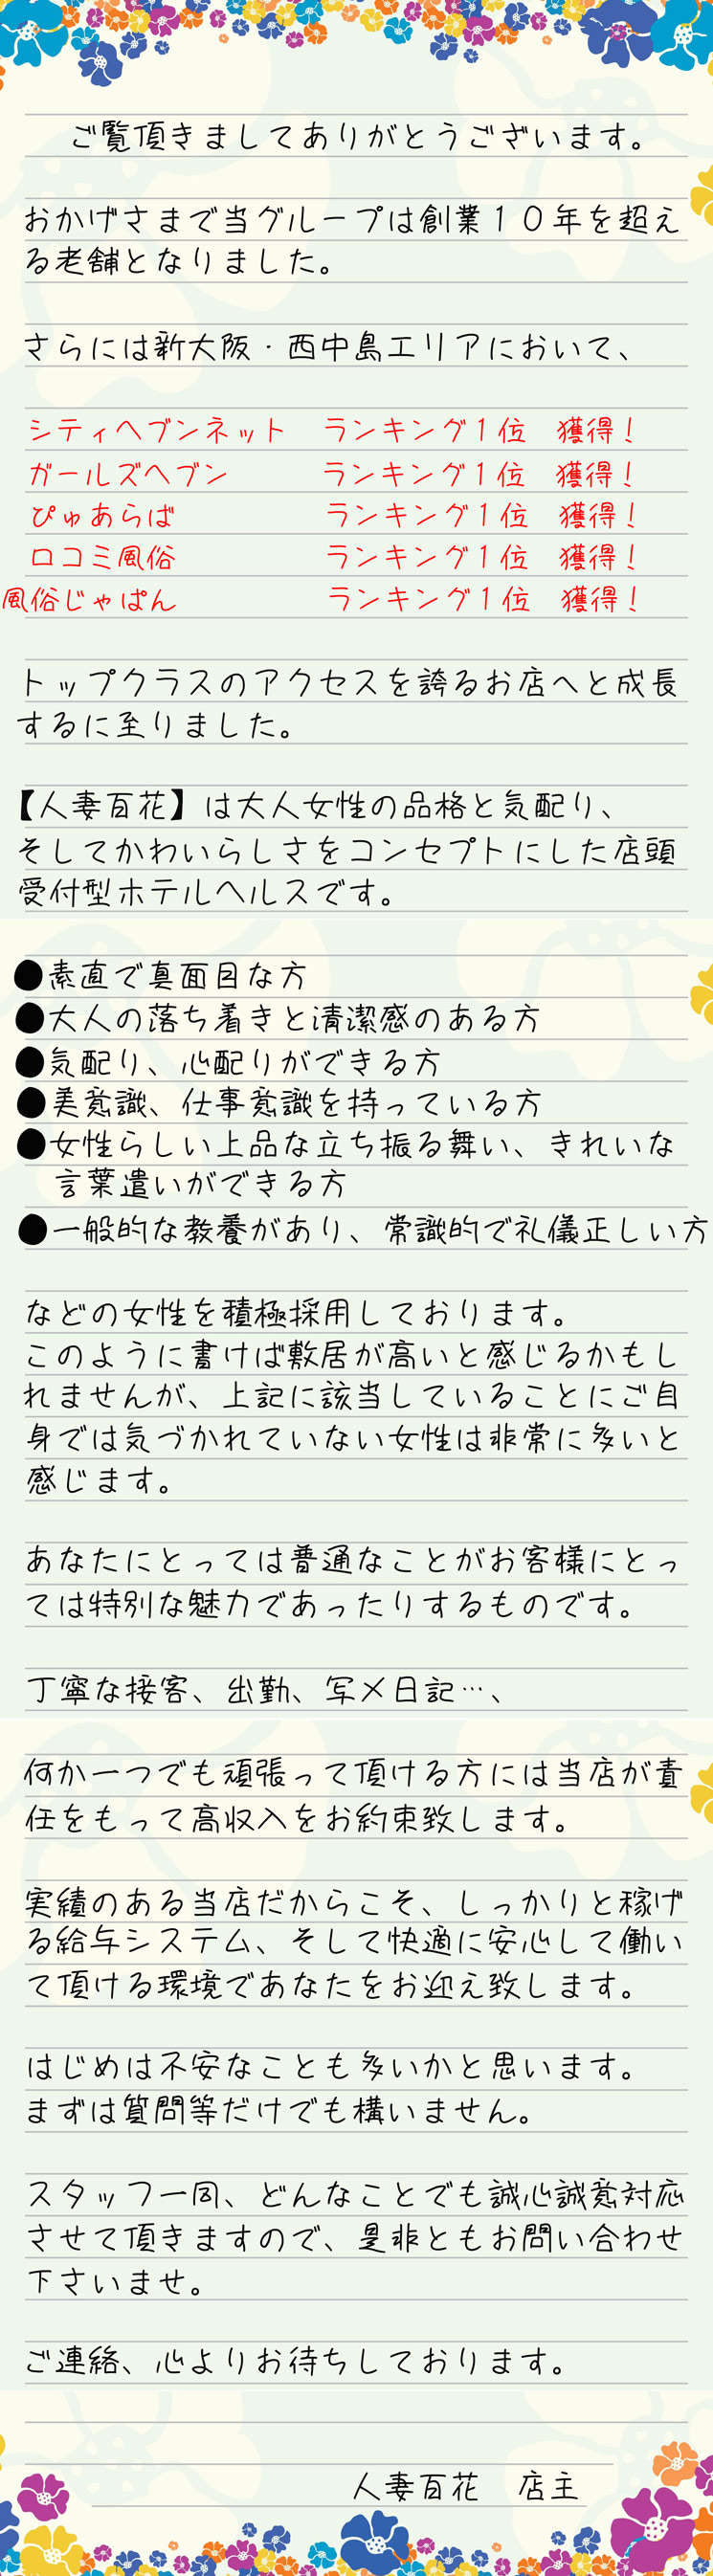 ご覧頂きましてありがとうございます。
おかげさまで当グループは創業１０年を超え
る老舗となりました。
さらには新大阪・西中島エリアにおいて、
シティヘブンネット　ランキング１位　獲得！
ガールズヘブン　ランキング１位　獲得！
ぴゅあらば　ランキング１位　獲得！
口コミ風俗　ランキング１位　獲得！
風俗じゃぱん　ランキング１位　獲得！
トップクラスのアクセスを誇るお店へと成長
するに至りました。
【人妻百花】は大人女性の品格と気配り、
そしてかわいらしさをコンセプトにした店頭
受付型ホテルヘルスです。
●素直で真面目な方
●大人の落ち着きと清潔感のある方
●気配り、心配りができる方
●美意識、仕事意識を持っている方
●女性らしい上品な立ち振る舞い、きれいな
言葉遣いができる方
●一般的な教養があり、常識的で礼儀正しい方
などの女性を積極採用しております。
このように書けば敷居が高いと感じるかもし
れませんが、上記に該当していることにご自
身では気づかれていない女性は非常に多いと
感じます。
あなたにとっては普通なことがお客様にとっ
ては特別な魅力であったりするものです。
丁寧な接客、出勤、写メ日記…、
何か一つでも頑張って頂ける方には当店が責
任をもって高収入をお約束致します。
実績のある当店だからこそ、しっかりと稼げ
る給与システム、そして快適に安心して働い
て頂ける環境であなたをお迎え致します。
はじめは不安なことも多いかと思います。
まずは質問等だけでも構いません。
スタッフ一同、どんなことでも誠心誠意対応
させて頂きますので、是非ともお問い合わせ
下さいませ。
ご連絡、心よりお待ちしております。
人妻百花　店主